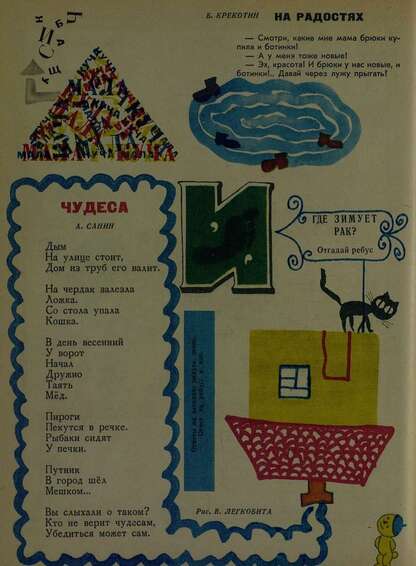 Б. КРЕКОТИН НА РАДОСТЯХ
— Смотри, какие мне мама брюки ку-
пила и ботинки!
— А у меня тоже новые!
— Эх, красота! И брюки у нас новые, и
ботинки!.. Давай через лужу прыгать!
КУЧА
МАЛА
КУЧА
ЧУДЕСА
А. САНИН
Дым
На улице стоит,
Дом из труб его валит.
На чердак залезла
Ложка.
Со стола упала
Кошка.
В день весенний
У ворот
Начал
Дружно
Таять
Мёд.
Пироги
Пекутся в речке.
Рыбаки сидят
У печки.
Путник
В город шёл
Мешком...
Вы слыхали о таком?
Кто не верит чудесам,
Убедиться может сам.
И
ГДЕ ЗИМУЕТ
РАК?
Отгадай ребус
Рис. В. ЛЕГКОБИТА